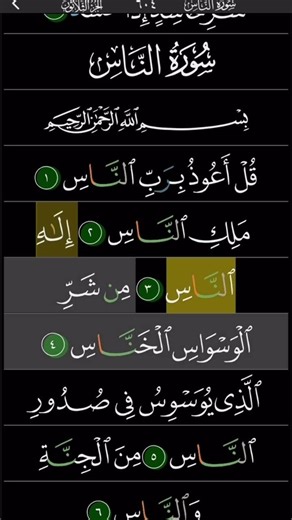 سُورَةُ النَّاسِ ٦٠٤ الجُزْءُ الثَّلَاثُونَ
سُورَةُ النَّاسِ
بِسْمِ ٱللَّهِ ٱلرَّحْمَٰنِ ٱلرَّحِيمِ
قُلْ أَعُوذُ بِرَبِّ ٱلنَّاسِ ١
مَلِكِ ٱلنَّاسِ ٢ إِلَٰهِ
ٱلنَّاسِ ٣ مِن شَرِّ
ٱلْوَسْوَاسِ ٱلْخَنَّاسِ ٤
ٱلَّذِى يُوَسْوِسُ فِى صُدُورِ
ٱلنَّاسِ ٥ مِنَ ٱلْجِنَّةِ
وَٱلنَّاسِ ٦